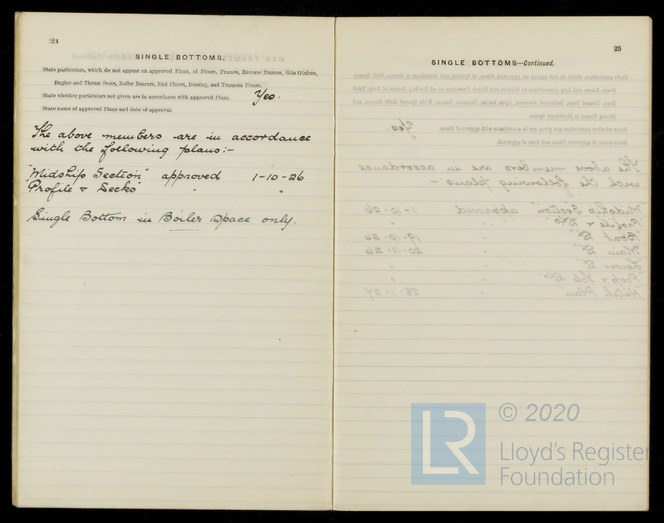 24
SINGLE BOTTOMS.
State particulars, which do not appear on approved Plans, of Floors, Frames, Reverse Frames, Side Girders,
Engine and Thrust Seats, Boiler Bearers, End Floors, Bossing, and Transom Floors.
State whether particulars not given are in accordance with approved Plans. Yes.
State name of approved Plans and date of approval.
The above members are in accordance
with the following plans:-
"Midship Section" approved 1-10-26
"Profile & Decks" " "
Single Bottom in Boiler Space only.
25
SINGLE BOTTOMS—Continued.
LR
© 2020
Lloyd's Register
Foundation